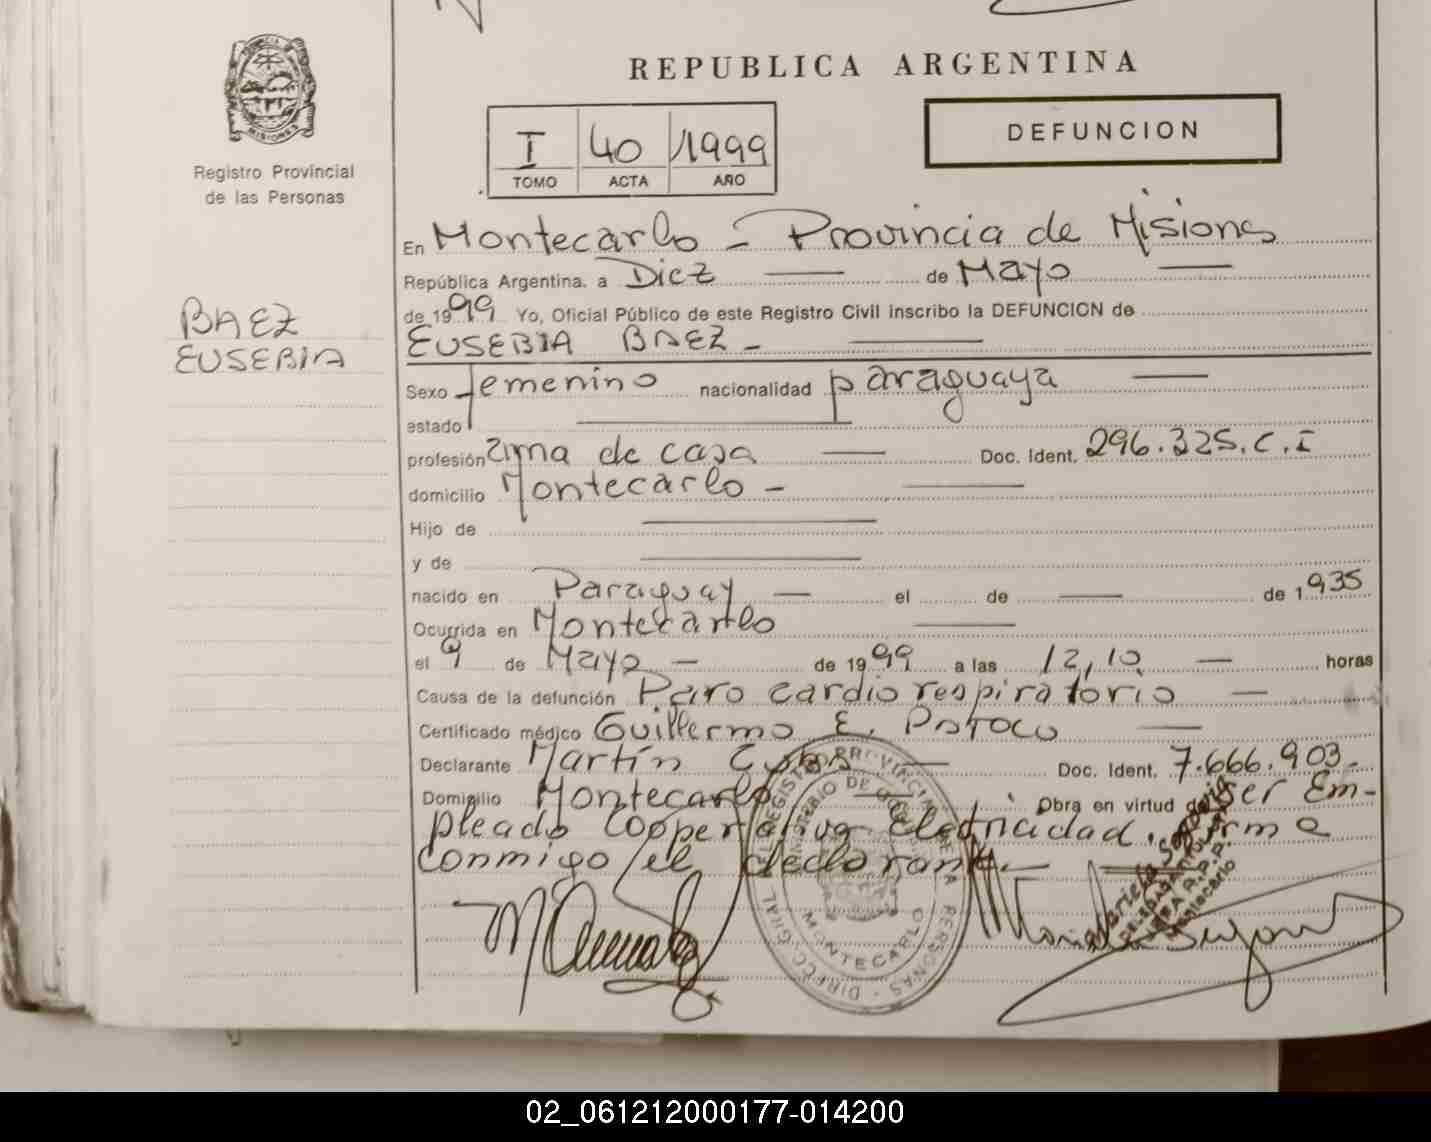 REPUBLICA ARGENTINA
DEFUNCION
I 40 1999
TOMO ACTA AÑO
MISIONES
Registro Provincial
de las Personas
BAEZ
EUSEBIA
En Montecarlo - Provincia de Misiones
República Argentina, a Diez de Mayo
de 1999 Yo, Oficial Público de este Registro Civil inscribo la DEFUNCION de
EUSEBIA BAEZ -
Sexo femenino nacionalidad paraguaya
estado
profesión ama de casa Doc. Ident. 296.325.C.I
domicilio Montecarlo -
Hijo de
y de
nacido en Paraguay el de de 1.935
Ocurrida en Montecarlo
el 9 de Mayo - de 1999 a las 12,10 horas
Causa de la defunción Paro cardio respiratorio
Certificado médico Guillermo E.
Declarante Martín Doc. Ident. 7.666.903.-
Domicilio Montecarlo Obra en virtud de ser Em-
pleado Cooperativa Electricidad. Firma
conmigo el declarante.-
MONTECARLO
02_061212000177-014200